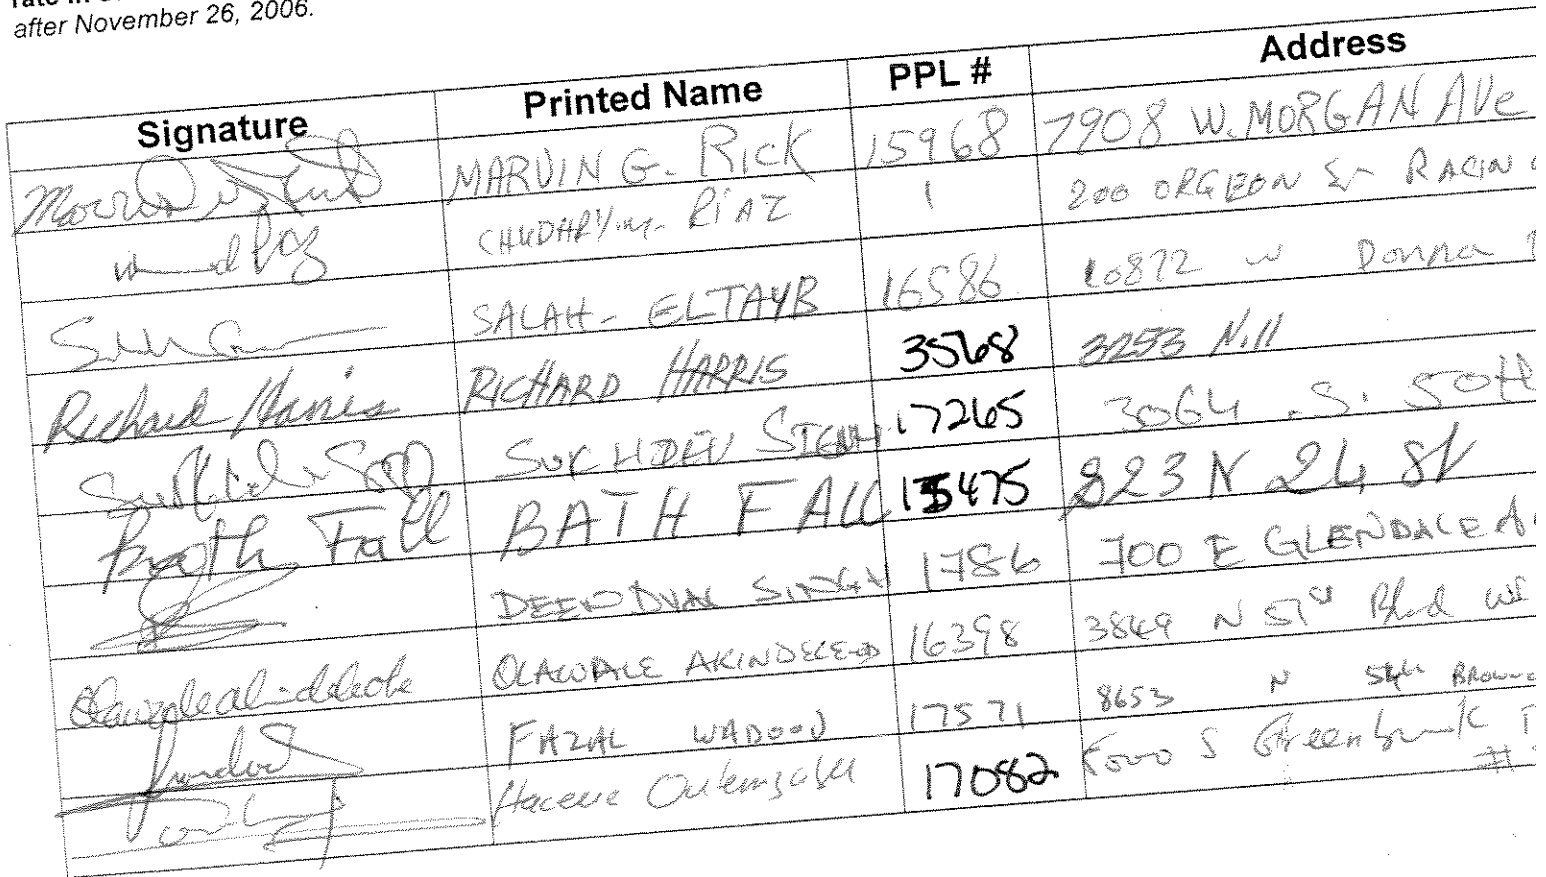 after November 26, 2006.
Signature Printed Name PPL # Address
MARVIN G. RICK 15968 7908 W. MORGAN AVE
CHUDHARY.M. RIAZ 1 200 ORGEON St RACIN
SALAH - ELTAYB 16586 10872 W Donna
Richard Harris RICHARD HARRIS 3568 3253 N. 11
SUKHDEV 17265 3064 S. 50th
Bath Fall BATH FALL 15475 823 N 24 St
SINGH 1786 700 E GLENDALE A
OLAWALE AKINDELE 16398 3849 N 51st Blvd WI
FAZAL WADOOD 17571 8653 N 54th BROWN
Hacene 17082 S Greenbrook